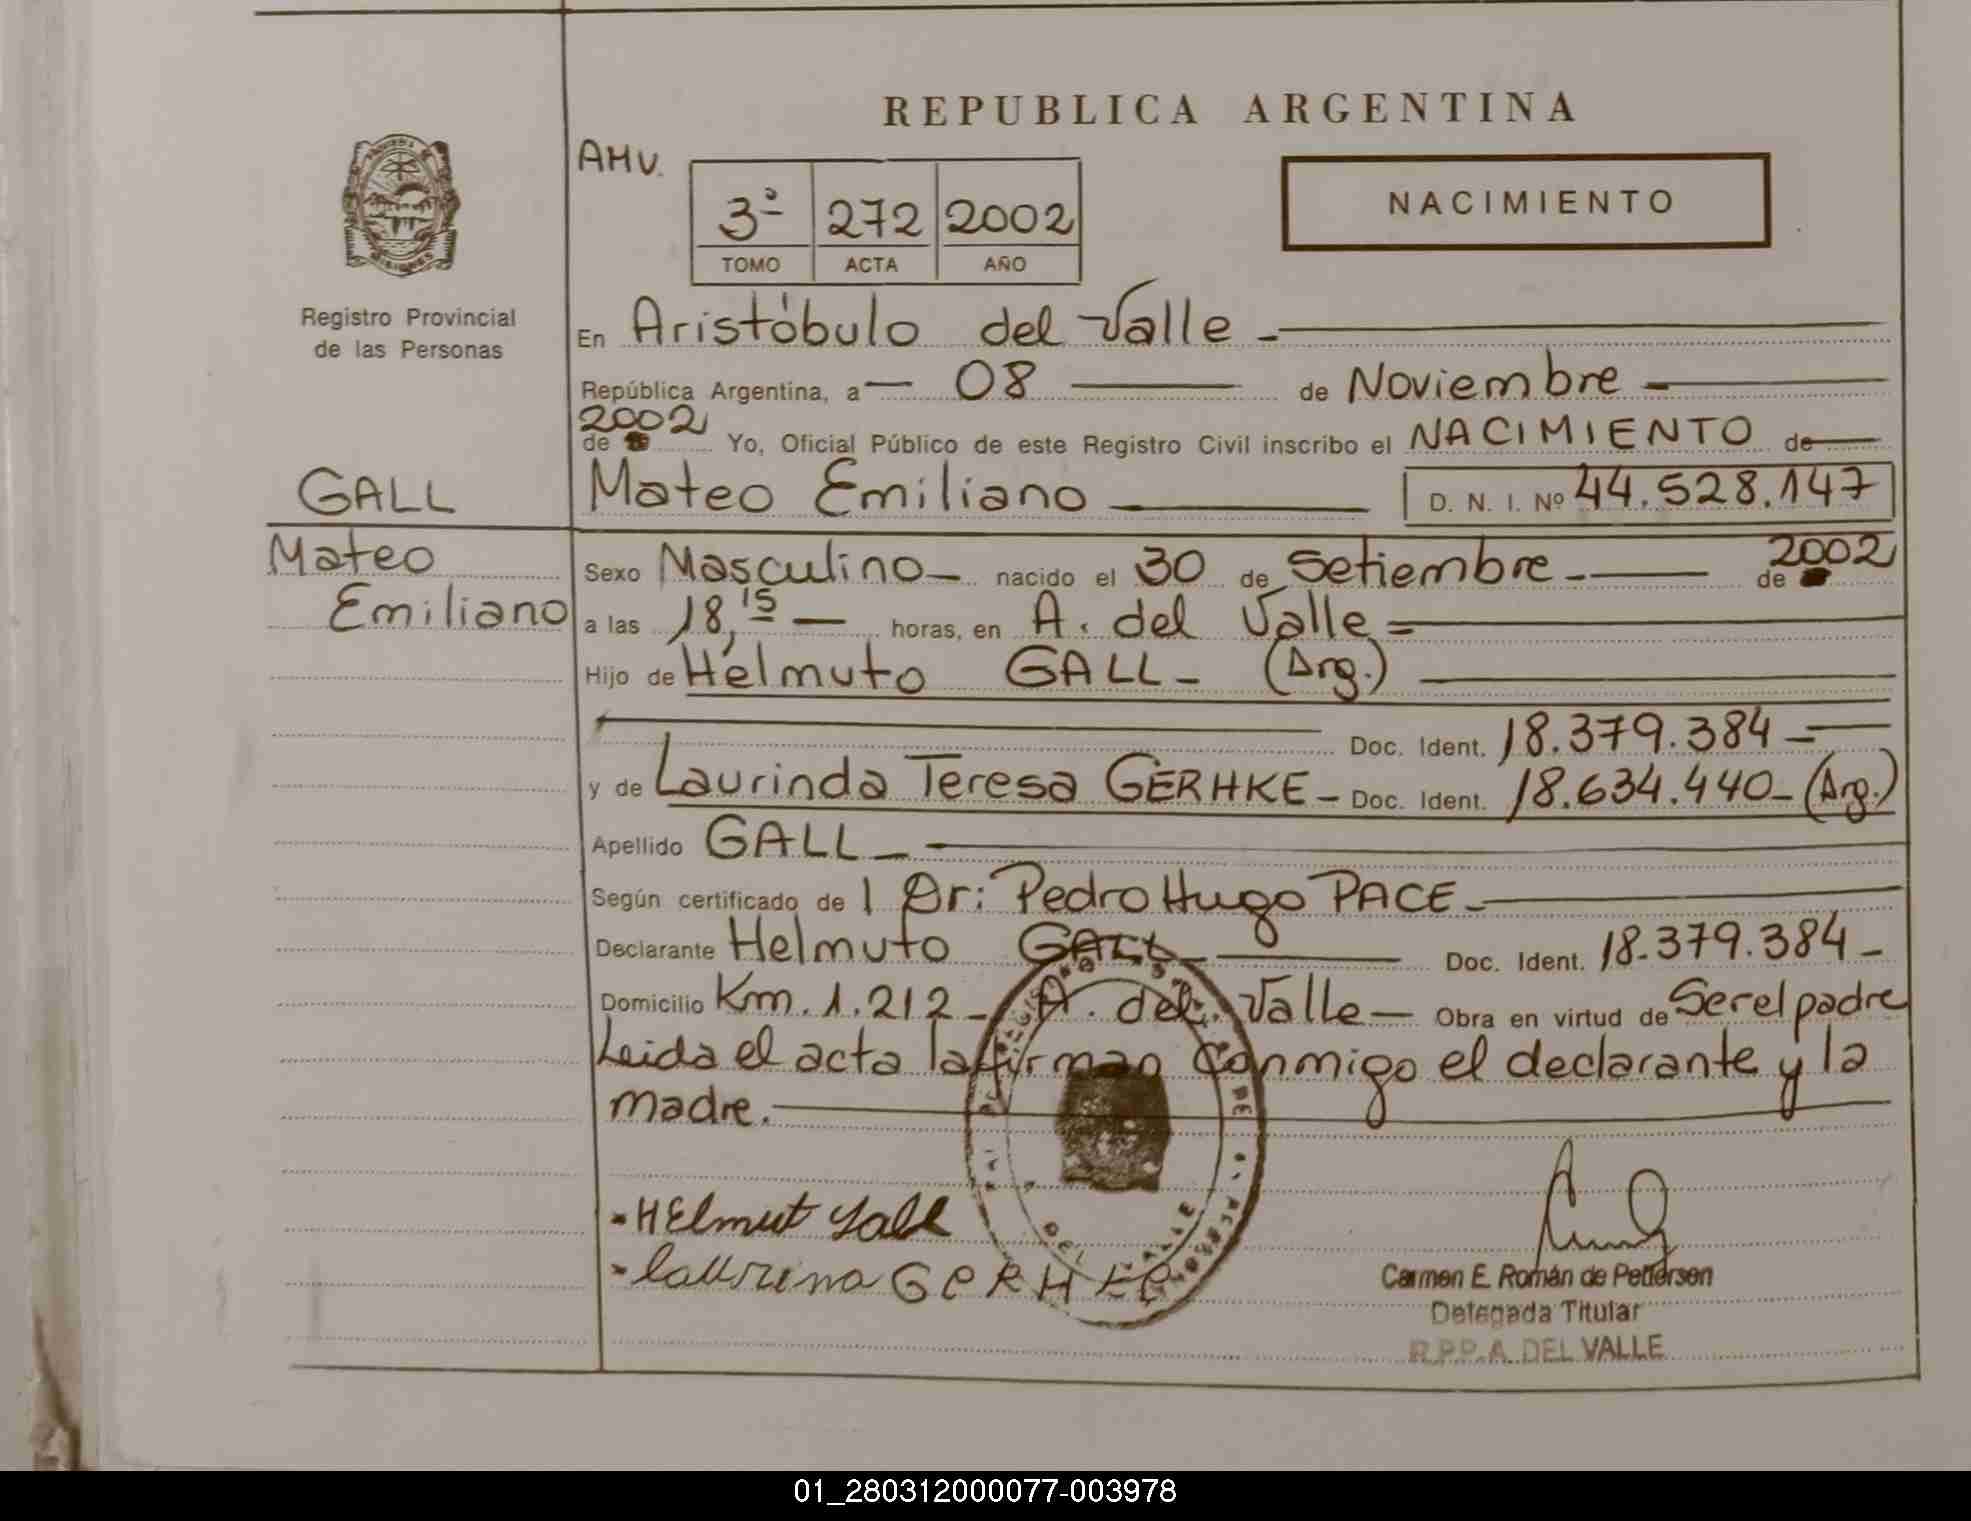 REPUBLICA ARGENTINA
AHV.
3ª 272 2002
TOMO ACTA AÑO
NACIMIENTO
Registro Provincial
de las Personas
En Aristóbulo del Valle -
República Argentina, a 08 de Noviembre -
2002
de Yo, Oficial Público de este Registro Civil inscribo el NACIMIENTO de
GALL
Mateo Emiliano D. N. I. Nº 44.528.147
Mateo
Emiliano
Sexo Masculino - nacido el 30 de Setiembre - de 2002
a las 18,15 - horas, en A. del Valle =
Hijo de Helmuto GALL - (Arg.)
Doc. Ident. 18.379.384 -
y de Laurinda Teresa GERHKE - Doc. Ident. 18.634.440 - (Arg.)
Apellido GALL -
Según certificado de l Dr: Pedro Hugo PACE -
Declarante Helmuto GALL - Doc. Ident. 18.379.384 -
Domicilio Km. 1.212 - A. del Valle - Obra en virtud de Ser el padre
Leida el acta la firman conmigo el declarante y la
madre.
HElmut Gall
laurina GERHKE
DEL VALLE
Carmen E. Román de Pettersen
Delegada Titular
R.P.P. A. DEL VALLE
01_280312000077-003978